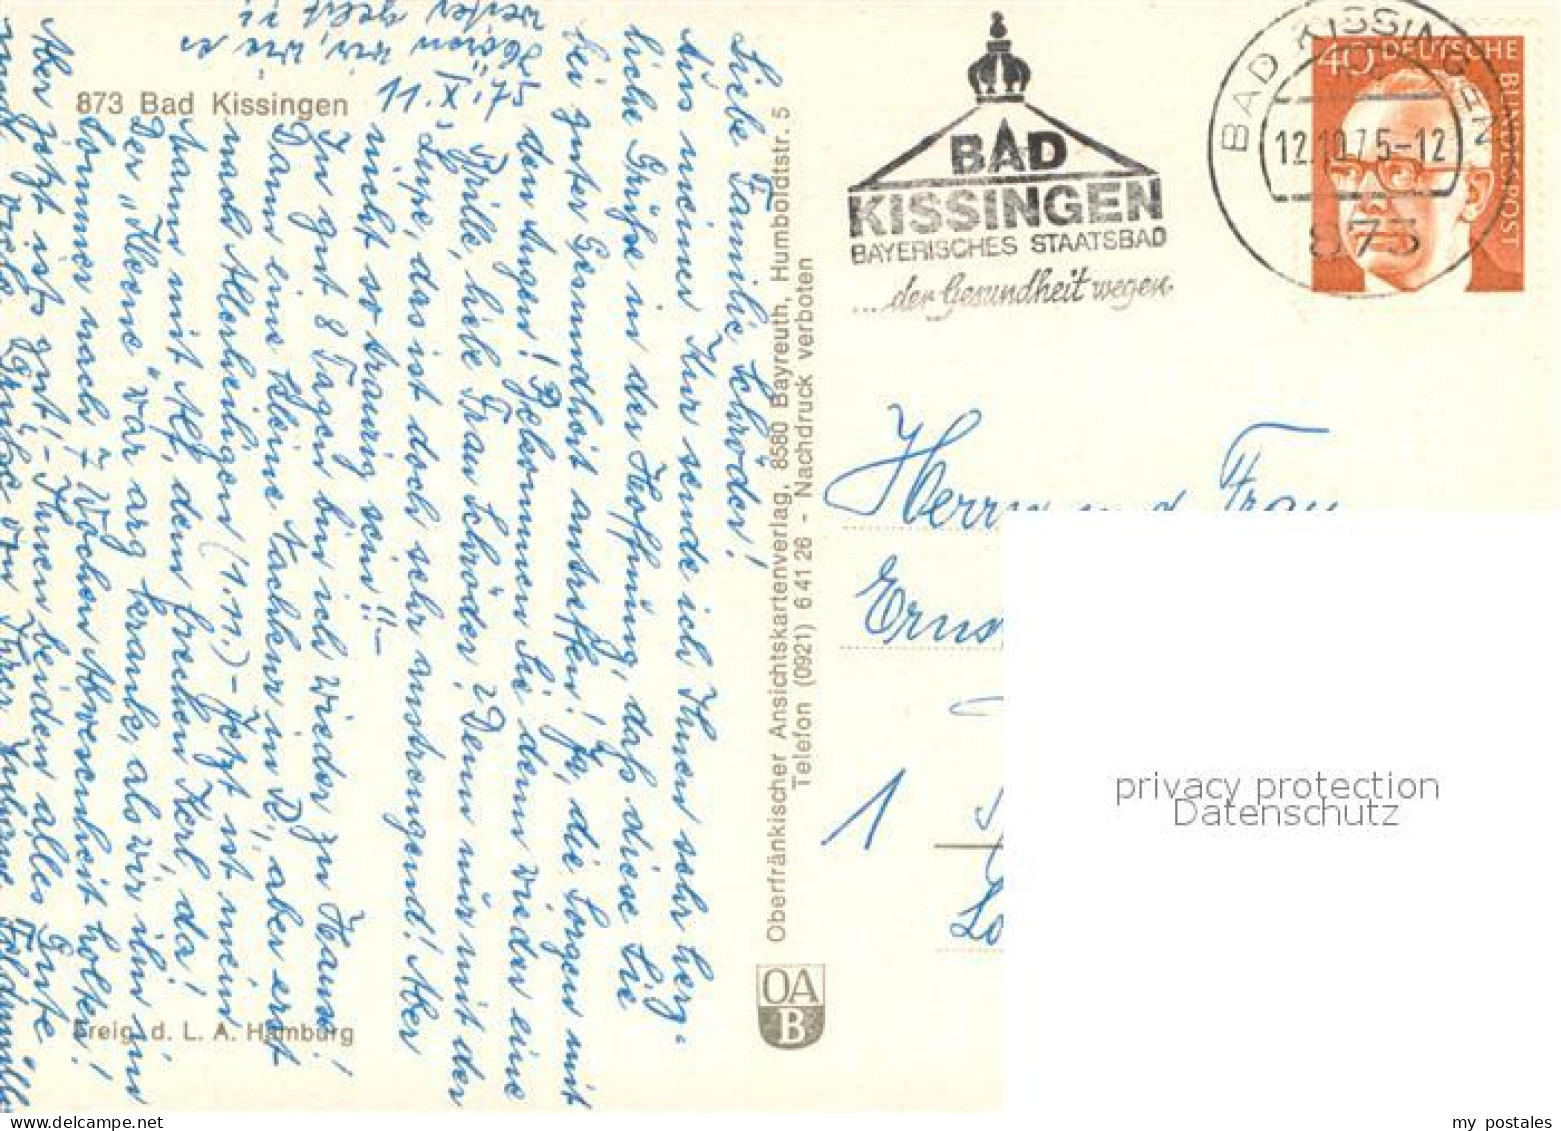 11.X.75
Liebe Familie Schröder!
Aus meiner Kur sende ich Ihnen sehr herz-
liche Grüße in der Hoffnung, daß diese Sie
bei guter Gesundheit antreffen! Ja, die Sorgen mit
den Augen! Bekommen Sie denn wieder eine
Brille, liebe Frau Schröder? Denn nur mit der
Lupe, das ist doch sehr anstrengend! Aber
nicht so traurig sein!!-
In gut 8 Tagen bin ich wieder zu Hause!
Dann eine kleine Nachkur in R., aber erst
nach Allerheiligen (1.11.)- Jetzt ist mein
Mann mit Alf, dem frechen Kerl, da!
Der "Kleine" war arg krank, als wir ihn im
Sommer nach 7 Wochen Abwesenheit holten!
Aber jetzt ists gut!- Ihnen beiden alles Gute
und viele Grüße von Ihrer
Hören wir, wie es
weiter geht
873 Bad Kissingen
Freig. d. L. A. Hamburg
Oberfränkischer Ansichtskartenverlag, 8580 Bayreuth, Humboldtstr. 5
Telefon (0921) 6 41 26 - Nachdruck verboten
OA
B
BAD
KISSINGEN
BAYERISCHES STAATSBAD
...der Gesundheit wegen
BAD KISSINGEN
12.10.75-12
873
40 DEUTSCHE
BUNDESPOST
Herrn und Frau
Ernst
1
privacy protection
Datenschutz
my postales